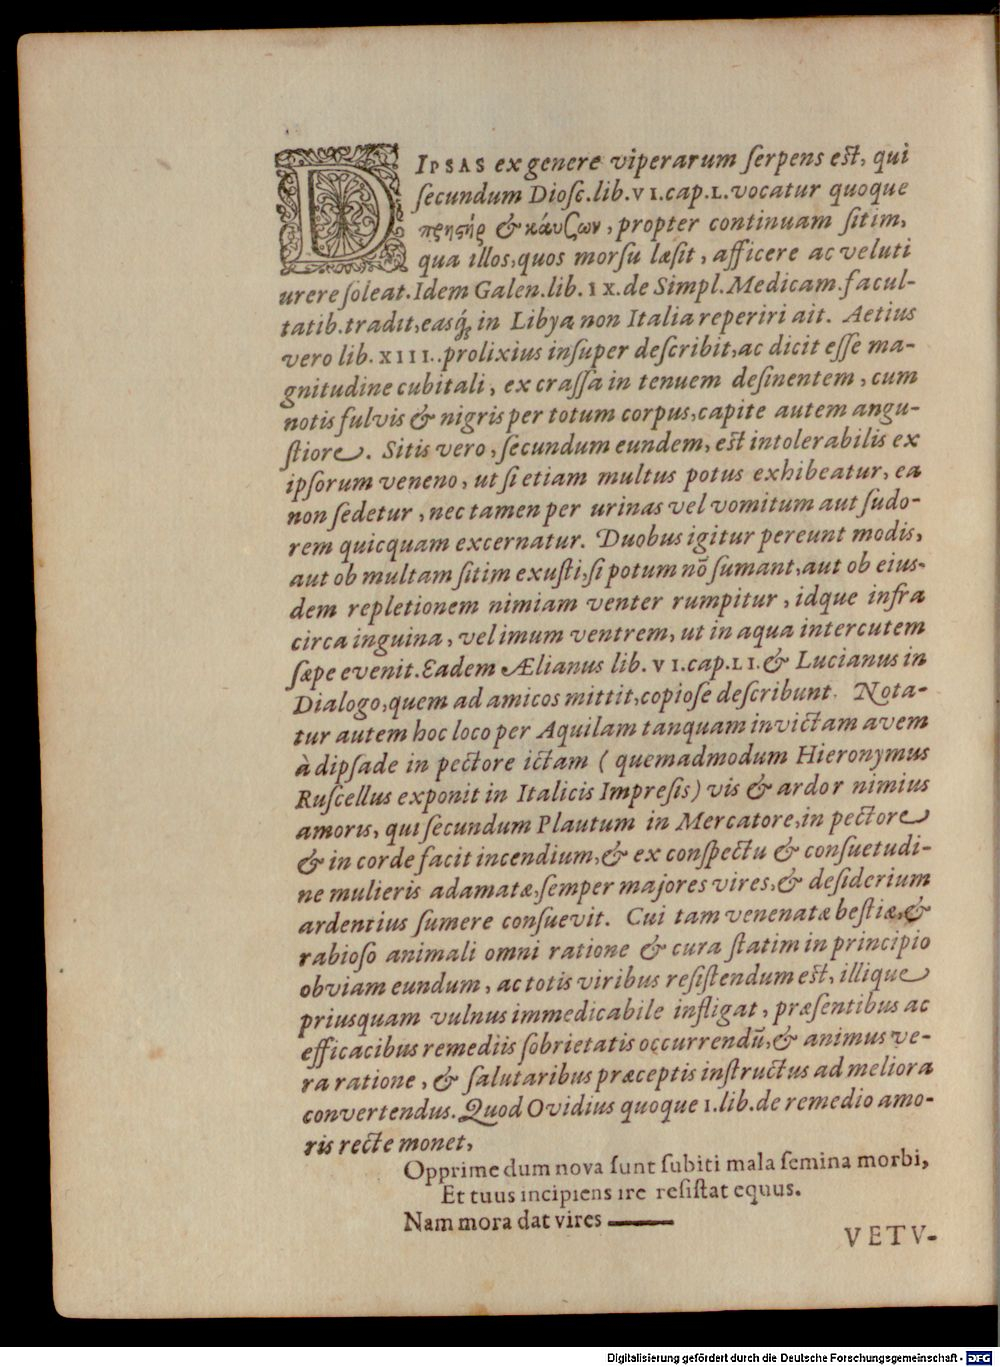 DIPSAS ex genere viperarum serpens est, qui
secundum Diosc. lib. VI. cap. L. vocatur quoque
πρηςήρ & κάυζων, propter continuam sitim,
qua illos, quos morsu læsit, afficere ac veluti
urere soleat. Idem Galen. lib. IX. de Simpl. Medicam. facul-
tatib. tradit, easq́; in Libya non Italia reperiri ait. Aetius
vero lib. XIII.. prolixius insuper describit, ac dicit esse ma-
gnitudine cubitali, ex crassa in tenuem desinentem, cum
notis fulvis & nigris per totum corpus, capite autem angu-
stiore. Sitis vero, secundum eundem, est intolerabilis ex
ipsorum veneno, ut si etiam multus potus exhibeatur, ea
non sedetur, nec tamen per urinas vel vomitum aut sudo-
rem quicquam excernatur. Duobus igitur pereunt modis,
aut ob multam sitim exusti, si potum nō sumant, aut ob eius-
dem repletionem nimiam venter rumpitur, idque infra
circa inguina, vel imum ventrem, ut in aqua intercutem
sæpe evenit. Eadem Ælianus lib. VI. cap. LI. & Lucianus in
Dialogo, quem ad amicos mittit, copiose describunt. Nota-
tur autem hoc loco per Aquilam tanquam invictam avem
à dipsade in pectore ictam ( quemadmodum Hieronymus
Ruscellus exponit in Italicis Impresis) vis & ardor nimius
amoris, qui secundum Plautum in Mercatore, in pectore
& in corde facit incendium, & ex conspectu & consuetudi-
ne mulieris adamatæ, semper majores vires, & desiderium
ardentius sumere consuevit. Cui tam venenatæ bestiæ, &
rabioso animali omni ratione & cura statim in principio
obviam eundum, ac totis viribus resistendum est, illique
priusquam vulnus immedicabile infligat, præsentibus ac
efficacibus remediis sobrietatis occurrendū, & animus ve-
ra ratione, & salutaribus præceptis instructus ad meliora
convertendus. Quod Ovidius quoque 1. lib. de remedio amo-
ris recte monet,
Opprime dum nova sunt subiti mala semina morbi,
Et tuus incipiens ire resistat equus.
Nam mora dat vires ———
VETV-
Digitalisierung gefördert durch die Deutsche Forschungsgemeinschaft - DFG